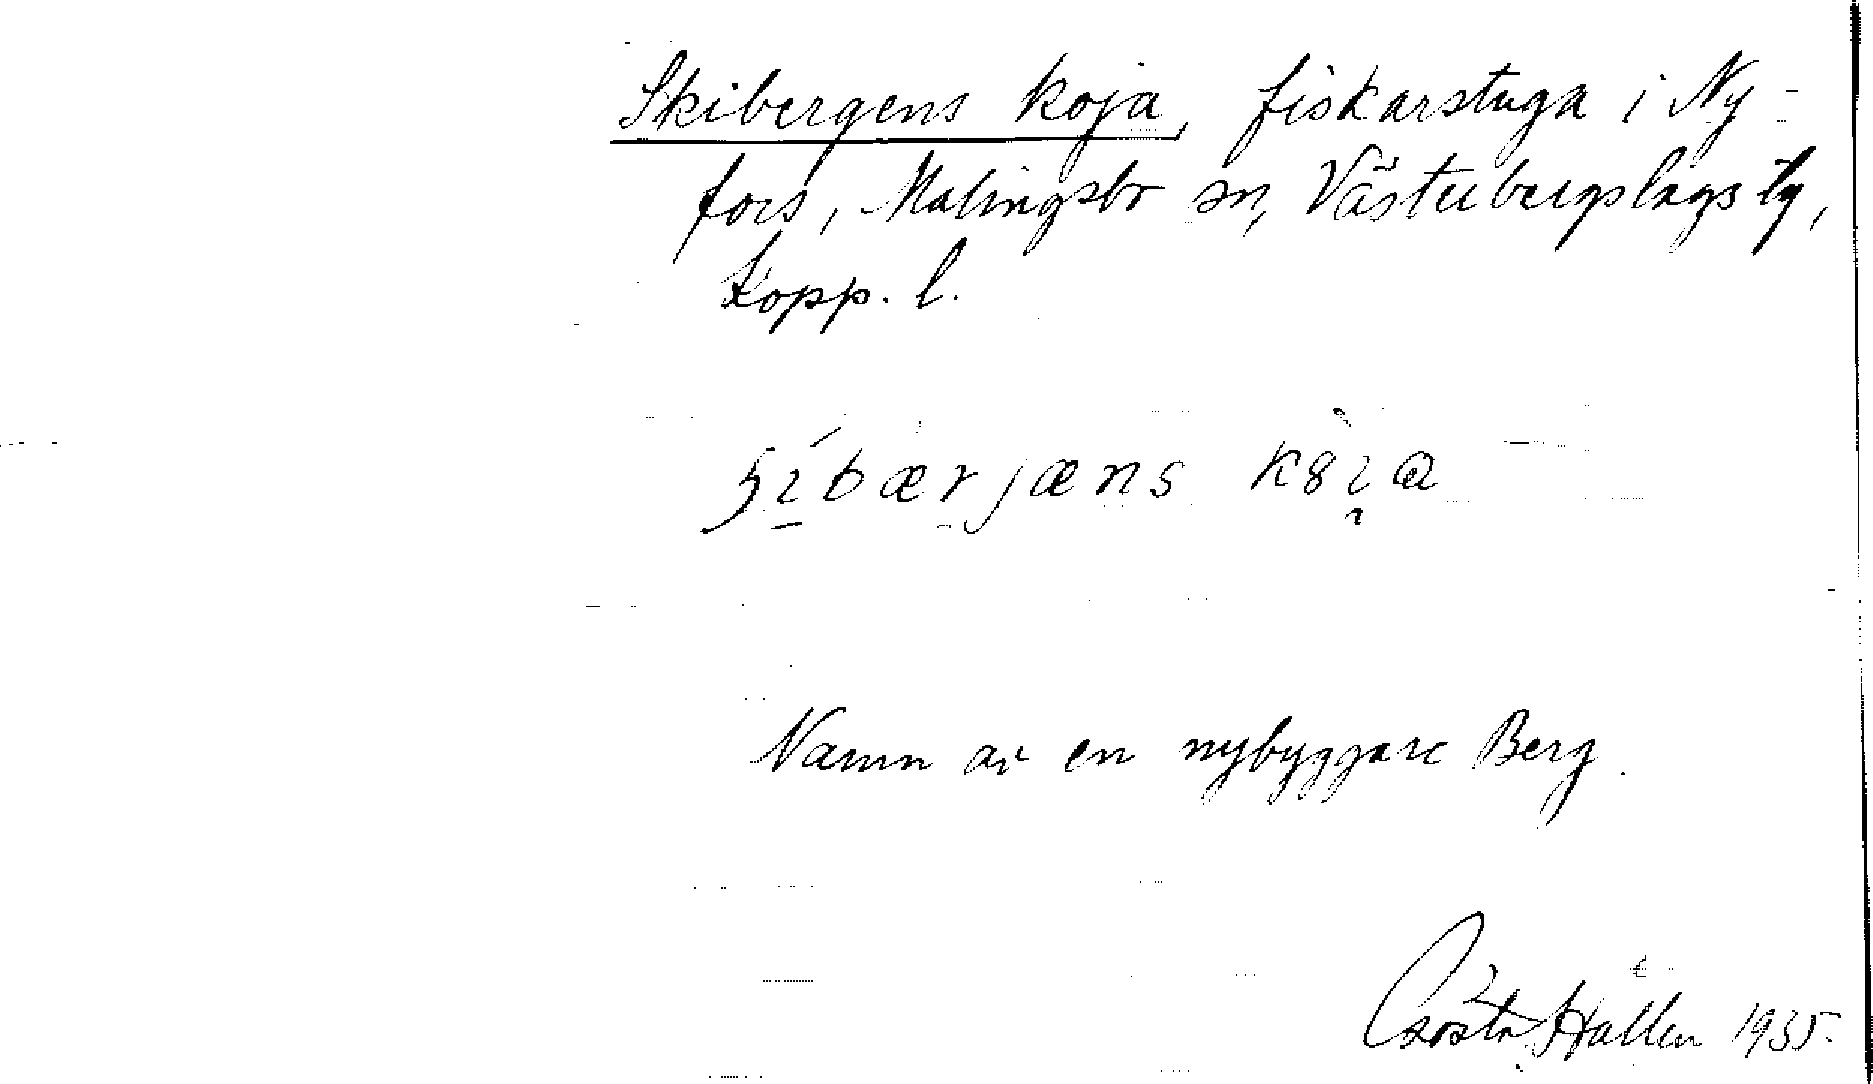 Skibergens koja, fiskarstuga i Ny-
fors, Malingsbo sn, Västerbergslags tg,
Kopp. l.
Namn av en nybyggare Berg.
Gösta Hallén 1935.